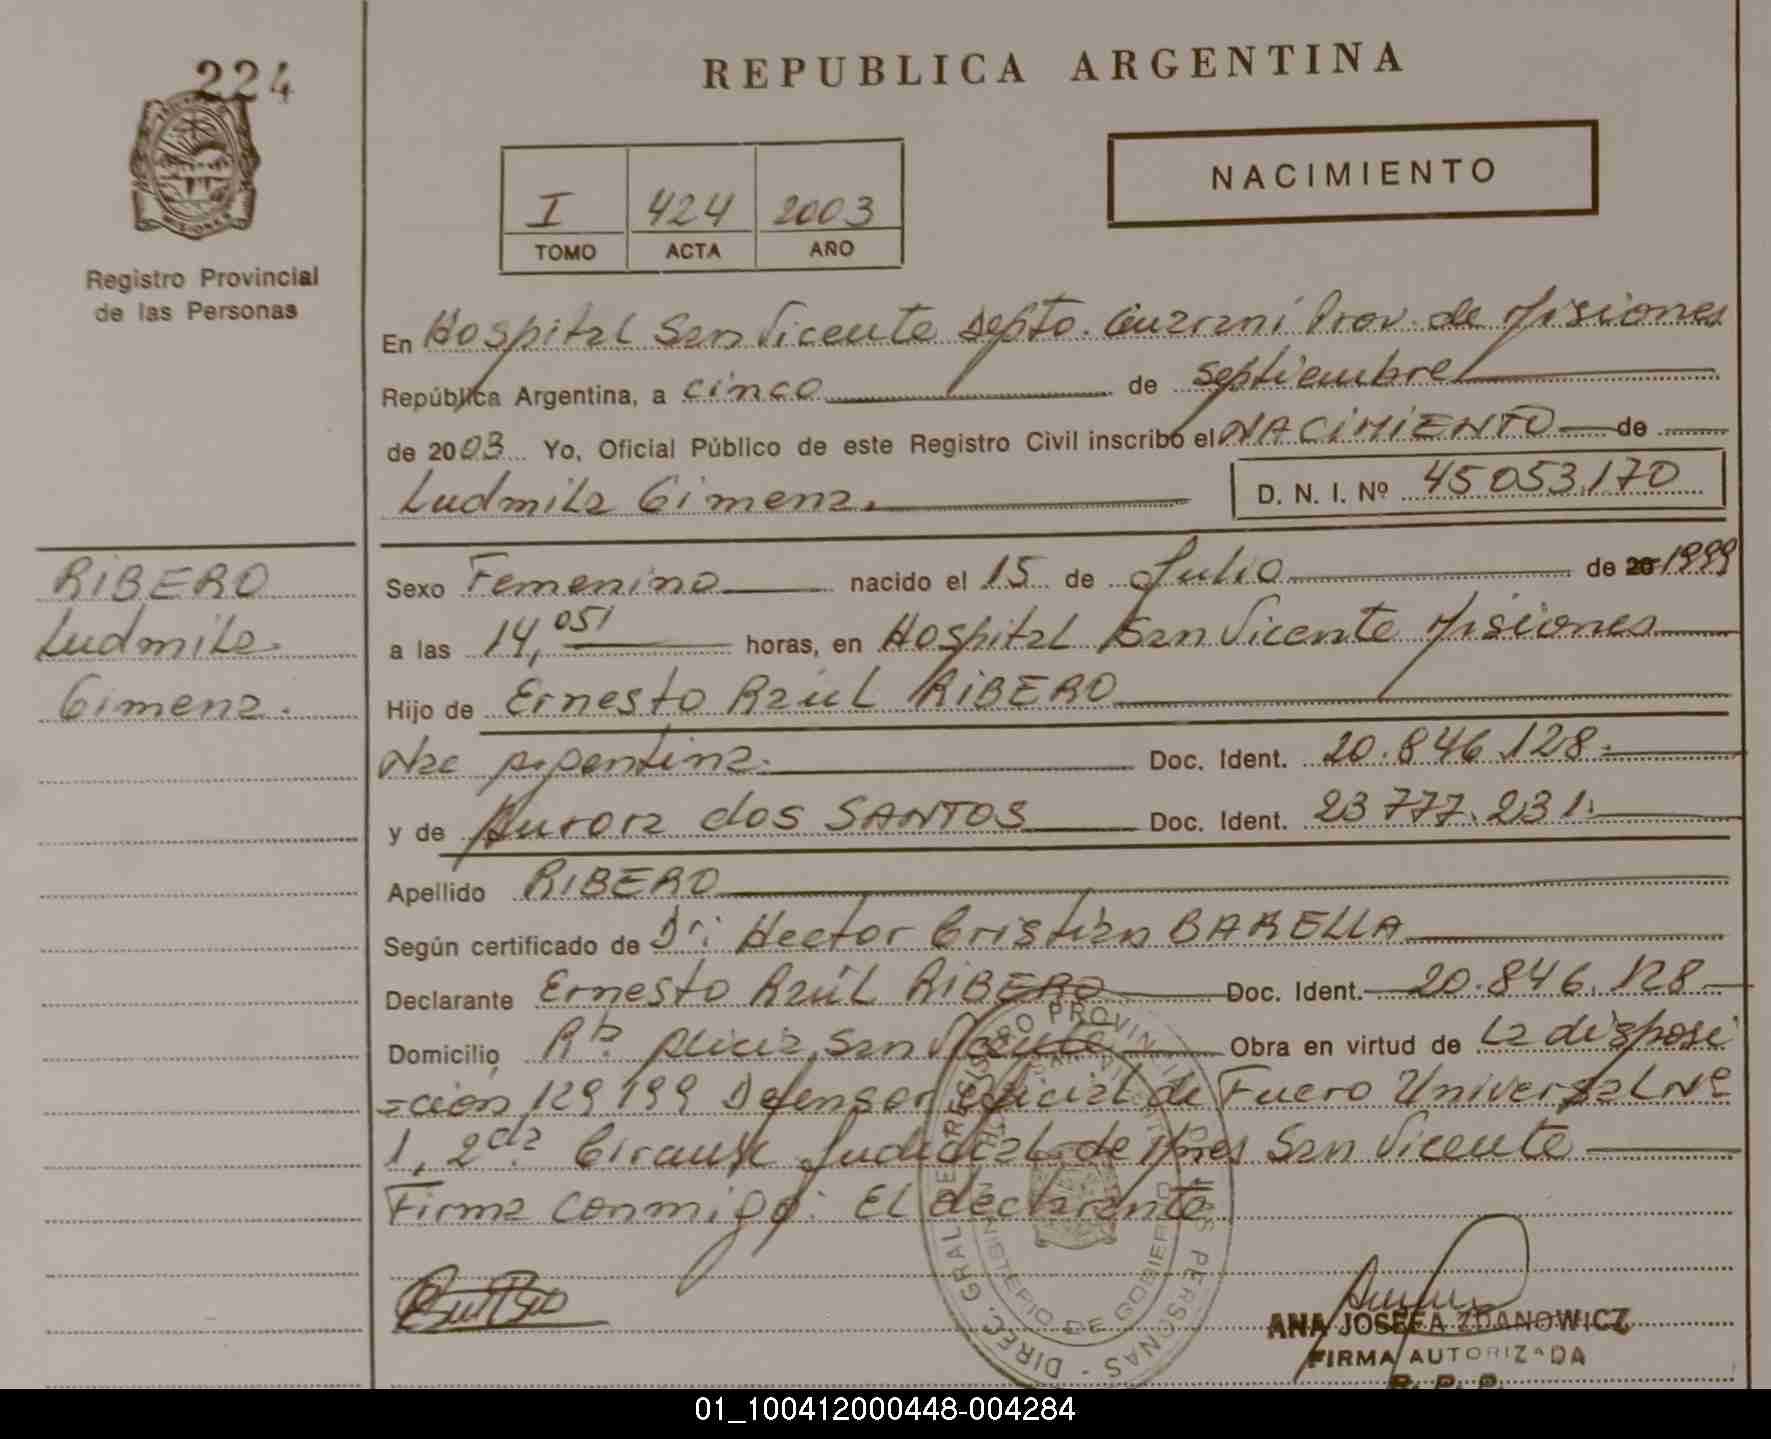 224
REPUBLICA ARGENTINA
NACIMIENTO
I 424 2003
TOMO ACTA AÑO
Registro Provincial
de las Personas
En Hospital San Vicente Depto. Guarani Prov. de Misiones
República Argentina, a cinco de septiembre
de 2003 Yo, Oficial Público de este Registro Civil inscribo el NACIMIENTO de
Ludmila Gimena. D. N. I. Nº 45053.170
RIBERO
Ludmila
Gimena.
Sexo Femenino nacido el 15 de Julio de 20 1999
a las 14,05' horas, en Hospital San Vicente Misiones
Hijo de Ernesto Raúl RIBERO
Nac Argentina. Doc. Ident. 20.846.128.
y de Aurora dos SANTOS Doc. Ident. 23777.231.
Apellido RIBERO
Según certificado de Dr: Hector Cristian BARELLA
Declarante Ernesto Raúl RIBERO Doc. Ident. 20.846.128
Domicilio Bº San Vicente Obra en virtud de La disposi
=ción 129/99 Defensor Oficial de Fuero Universal Nº
1, 2da Judicial de Mnes San Vicente
Firma conmigo: El declarante
DIREC. GRAL. DE REGISTRO PROVINCIAL DE LAS PERSONAS
MINISTERIO DE GOBIERNO
ANA JOSEFA ZDANOWICZ
FIRMA AUTORIZADA
R. P. P.
01_100412000448-004284